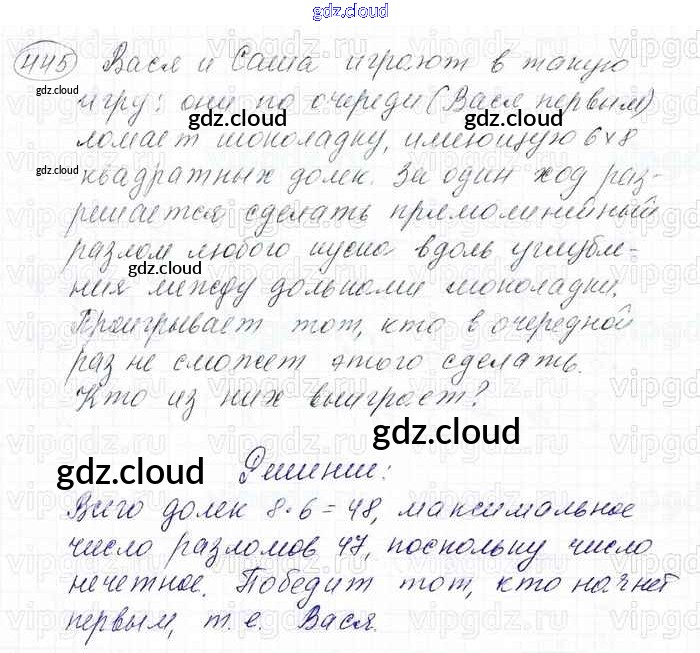 gdz.cloud
445 Вася и Саша играют в такую
gdz.cloud
игру: они по очереди (Вася первым)
gdz.cloud gdz.cloud
ломает шоколадку, имеющую 6×8
gdz.cloud
квадратных долек. За один ход раз-
решается сделать прямолинейный
разлом любого куска вдоль углубле-
gdz.cloud
ния между дольками шоколадки.
Проигрывает тот, кто в очередной
раз не сможет этого сделать.
Кто из них выиграет?
gdz.cloud
gdz.cloud Решение:
Всего долек 8·6=48, максимальное
число разломов 47, поскольку число
нечетное. Победит тот, кто начнет
первым, т.е. Вася.